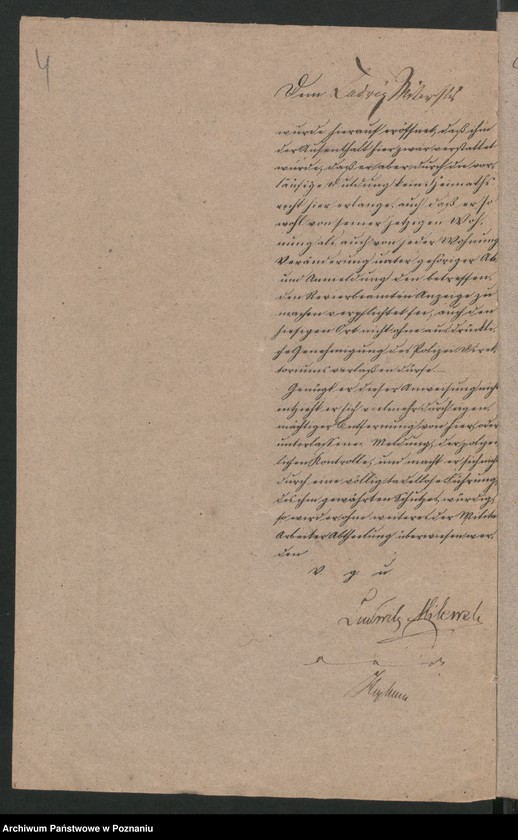 4
Dem Ludwig Milewski
wurde hierauf eröffnet, daß ihm
der Aufenthalt hier zwar verstattet
würde, daß er aber durch die vor-
läufige Duldung kein Heimaths
recht hier erlange, auch daß er so
wohl von seiner jetzigen Woh-
nung als auch von jeder Wohnung
Veränderung unter gehöriger Ab
und Anmeldung dem betreffen-
den Revierbeamten Anzeige zu
machen verpflichtet sei, auch den
hiesigen Ort nicht ohne ausdrückli-
che Genehmigung des Polizei Direk
toriums verlaßen dürfe.
Genügt er dieser Anweisung nicht
entzieht er sich vielmehr durch eigen-
mächtiger Entfernung von hier, oder
unterlassener Meldung, der polizei-
lichen Kontrolle, und macht er sich nicht
durch eine völlig tadellose Führung
des ihm gewährten Schutzes, würdig,
so wird er ohne weiteres der Militr
Arbeiter Abtheilung überwiesen wer-
den
v g u
Ludwik Milewski
a u s
Archiwum Państwowe w Poznaniu